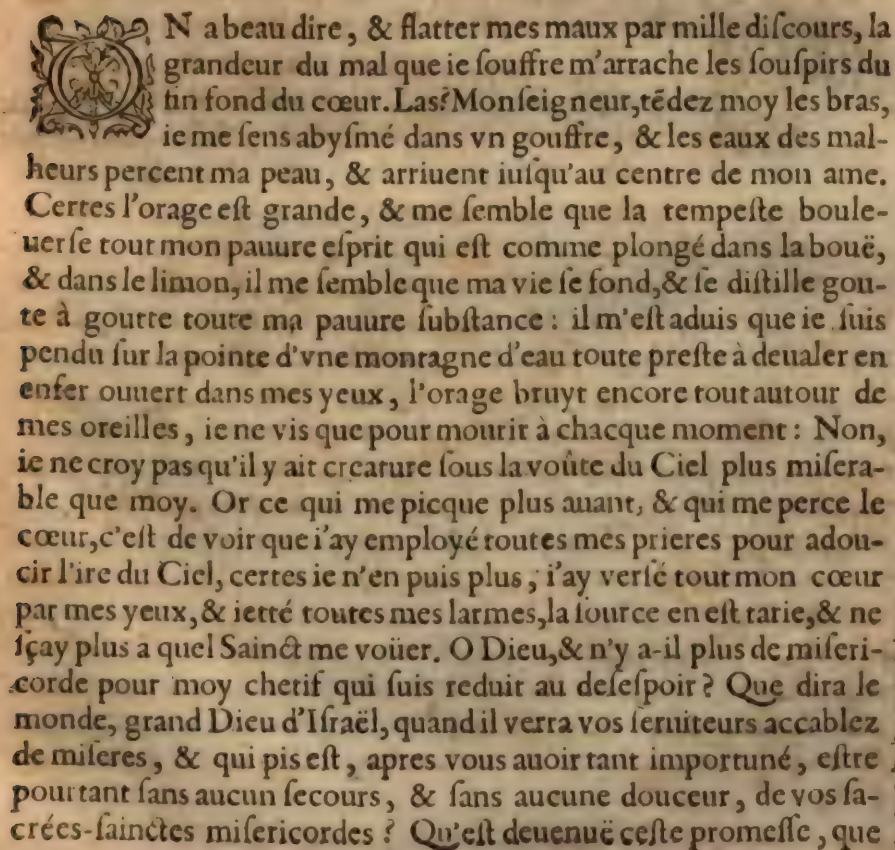 ON a beau dire, & flatter mes maux par mille diſcours, la
grandeur du mal que ie ſouffre m'arrache les ſouſpirs du
fin fond du cœur. Las? Monſeigneur, tēdez moy les bras,
ie me ſens abyſmé dans vn gouffre, & les eaux des mal-
heurs percent ma peau, & arriuent iuſqu'au centre de mon ame.
Certes l'orage eſt grande, & me ſemble que la tempeſte boule-
uerſe tout mon pauure eſprit qui eſt comme plongé dans la bouë,
& dans le limon, il me ſemble que ma vie ſe fond, & ſe diſtille gou-
te à goutte toute ma pauure ſubſtance : il m'eſt aduis que ie ſuis
pendu ſur la pointe d'vne montagne d'eau toute preſte à deualer en
enfer ouuert dans mes yeux, l'orage bruyt encore tout autour de
mes oreilles, ie ne vis que pour mourir à chacque moment : Non,
ie ne croy pas qu'il y ait creature ſous la voûte du Ciel plus miſera-
ble que moy. Or ce qui me picque plus auant, & qui me perce le
cœur, c'eſt de voir que i'ay employé toutes mes prieres pour adou-
cir l'ire du Ciel, certes ie n'en puis plus, i'ay verſé tout mon cœur
par mes yeux, & ietté toutes mes larmes, la ſource en eſt tarie, & ne
ſçay plus a quel Sainct me voüer. O Dieu, & n'y a-il plus de miſeri-
corde pour moy chetif qui ſuis reduit au deſeſpoir ? Que dira le
monde, grand Dieu d'Iſraël, quand il verra vos ſeruiteurs accablez
de miſeres, & qui pis eſt, apres vous auoir tant importuné, eſtre
pourtant ſans aucun ſecours, & ſans aucune douceur, de vos ſa-
crées-ſainctes miſericordes ? Qu'eſt deuenuë ceſte promeſſe, que